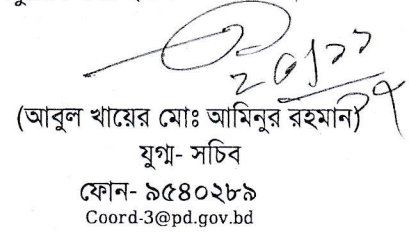 (আবুল খায়ের মোঃ আমিনুর রহমান)
যুগ্ম- সচিব
ফোন- ৯৫৪০২৮৯
Coord-3@pd.gov.bd